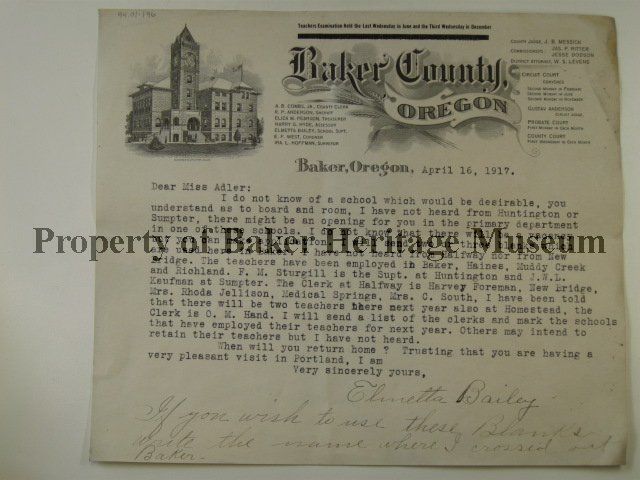 Teachers Examination Held the Last Wednesday in June and the Third Wednesday in December
Baker County,
OREGON
COUNTY JUDGE, J. B. MESSICK
COMMISSIONERS JAS. P. RITTER
JESSE DODSON
DISTRICT ATTORNEY, W. S. LEVENS
CIRCUIT COURT
CONVENES
SECOND MONDAY IN FEBRUARY
SECOND MONDAY IN JUNE
SECOND MONDAY IN NOVEMBER
GUSTAV ANDERSON
CIRCUIT JUDGE
PROBATE COURT
FIRST MONDAY IN EACH MONTH
COUNTY COURT
FIRST WEDNESDAY IN EACH MONTH
A. B. COMBS, JR., COUNTY CLERK
R. P. ANDERSON, SHERIFF
TREASURER
HARRY G. HYDE, ASSESSOR
ELMETTA BAILEY, SCHOOL SUPT.
E. F. WEST, CORONER
IRA L. HOFFMAN, SURVEYOR
Baker, Oregon, April 16, 1917.
Dear Miss Adler:
I do not know of a school which would be desirable, you
understand as to board and room, I have not heard from Huntington or
Sumpter, there might be an opening for you in the primary department
in one of the schools. I do not know that there will be a vacancy
Property of Baker Heritage Museum
I have not heard from Halfway nor from New
Bridge. The teachers have been employed in Baker, Haines, Muddy Creek
and Richland. F. M. Sturgill is the Supt. at Huntington and J.W.L.
Kaufman at Sumpter. The Clerk at Halfway is Harvey Foreman, New Bridge,
Mrs. Rhoda Jellison, Medical Springs, Mrs. C. South, I have been told
that there will be two teachers there next year also at Homestead, the
Clerk is O. M. Hand. I will send a list of the clerks and mark the schools
that have employed their teachers for next year. Others may intend to
retain their teachers but I have not heard.
When will you return home ? Trusting that you are having a
very pleasant visit in Portland, I am
Very sincerely yours,
Elmetta Bailey
If you wish to use these Blanks
write the name where I crossed out
Baker.